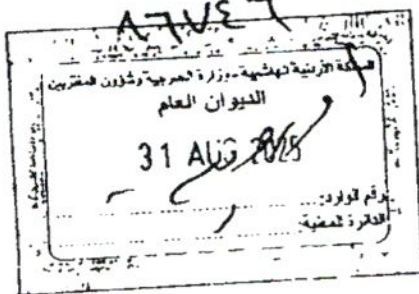 ٨٦٧٤٦
المملكة الأردنية الهاشمية - وزارة الخارجية وشؤون المغتربين
الديوان العام
31 AUG 2025
رقم الوارد:
الدائرة المعنية: